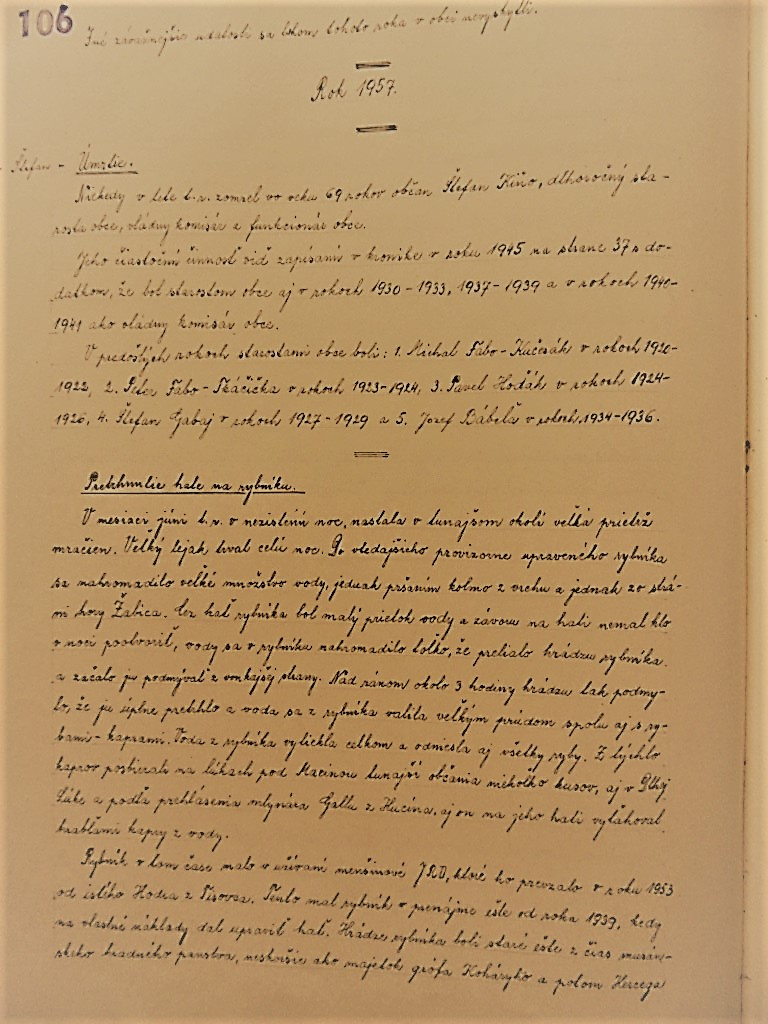 106
Iné závažnejšie udalosti sa behom tohoto roka v obci nevyskytli.
Rok 1957.
- Štefan -
Úmrtie.
Niekedy v lete t.r. zomrel vo veku 69 rokov občan Štefan Kiňo, dlhoročný sta-
rosta obce, vládny komisár a funkcionár obce.
Jeho čiastočnú činnosť viď zapísanú v kronike v roku 1945 na strane 37 s do-
datkom, že bol starostom obce aj v rokoch 1930-1933, 1937-1939 a v rokoch 1940-
1941 ako vládny komisár obce.
V predošlých rokoch starostami obce boli: 1. Michal Fabo-Kučerák v rokoch 1920-
1922, 2. Peter Fabo-Tkáčička v rokoch 1923-1924, 3. Pavel Hodák v rokoch 1924-
1926, 4. Štefan Gabaj v rokoch 1927-1929 a 5. Jozef Bábela v rokoch 1934-1936.
Pretrhnutie hate na rybníku.
V mesiaci júni t.r. v nezistenú noc, nastala v tunajšom okolí veľká prietrž
mračien. Veľký lejak trval celú noc. Do vtedajšieho provizorne upraveného rybníka
sa nahromadilo veľké množstvo vody, jednak pršaním kolmo z vrchu a jednak zo strá-
ni hory Žabica. Cez hať rybníka bol malý prietok vody a závoru na hati nemal kto
v noci pootvoriť, vody sa v rybníku nahromadilo toľko, že prelialo hrádzu rybníka
a začalo ju podmývať z vonkajšej strany. Nad ránom okolo 3 hodiny hrádzu tak podmy-
lo, že ju úplne pretrhlo a voda sa z rybníka valila veľkým prúdom spolu aj s ry-
bami-kaprami. Voda z rybníka vytiekla celkom a odniesla aj všetky ryby. Z týchto
kaprov posbierali na lúkach pod Macinou tunajší občania niekoľko kusov, aj v Dlhej
Lúke a podľa prehlásenia mlynára Gallu z Hucína, aj on na jeho hati vyťahoval
hrabľami kapry z vody.
Rybník v tom čase malo v užívaní menšinové JRD, ktoré ho prevzalo v roku 1953
od istého Hodra z Tisovca. Tento mal rybník v prenájme ešte od roku 1939, kedy
na vlastné náklady dal upraviť hať. Hrádze rybníka boli staré ešte z čias murán-
skeho hradného panstva, neskoršie ako majetok grófa Koháryho a potom Hercega